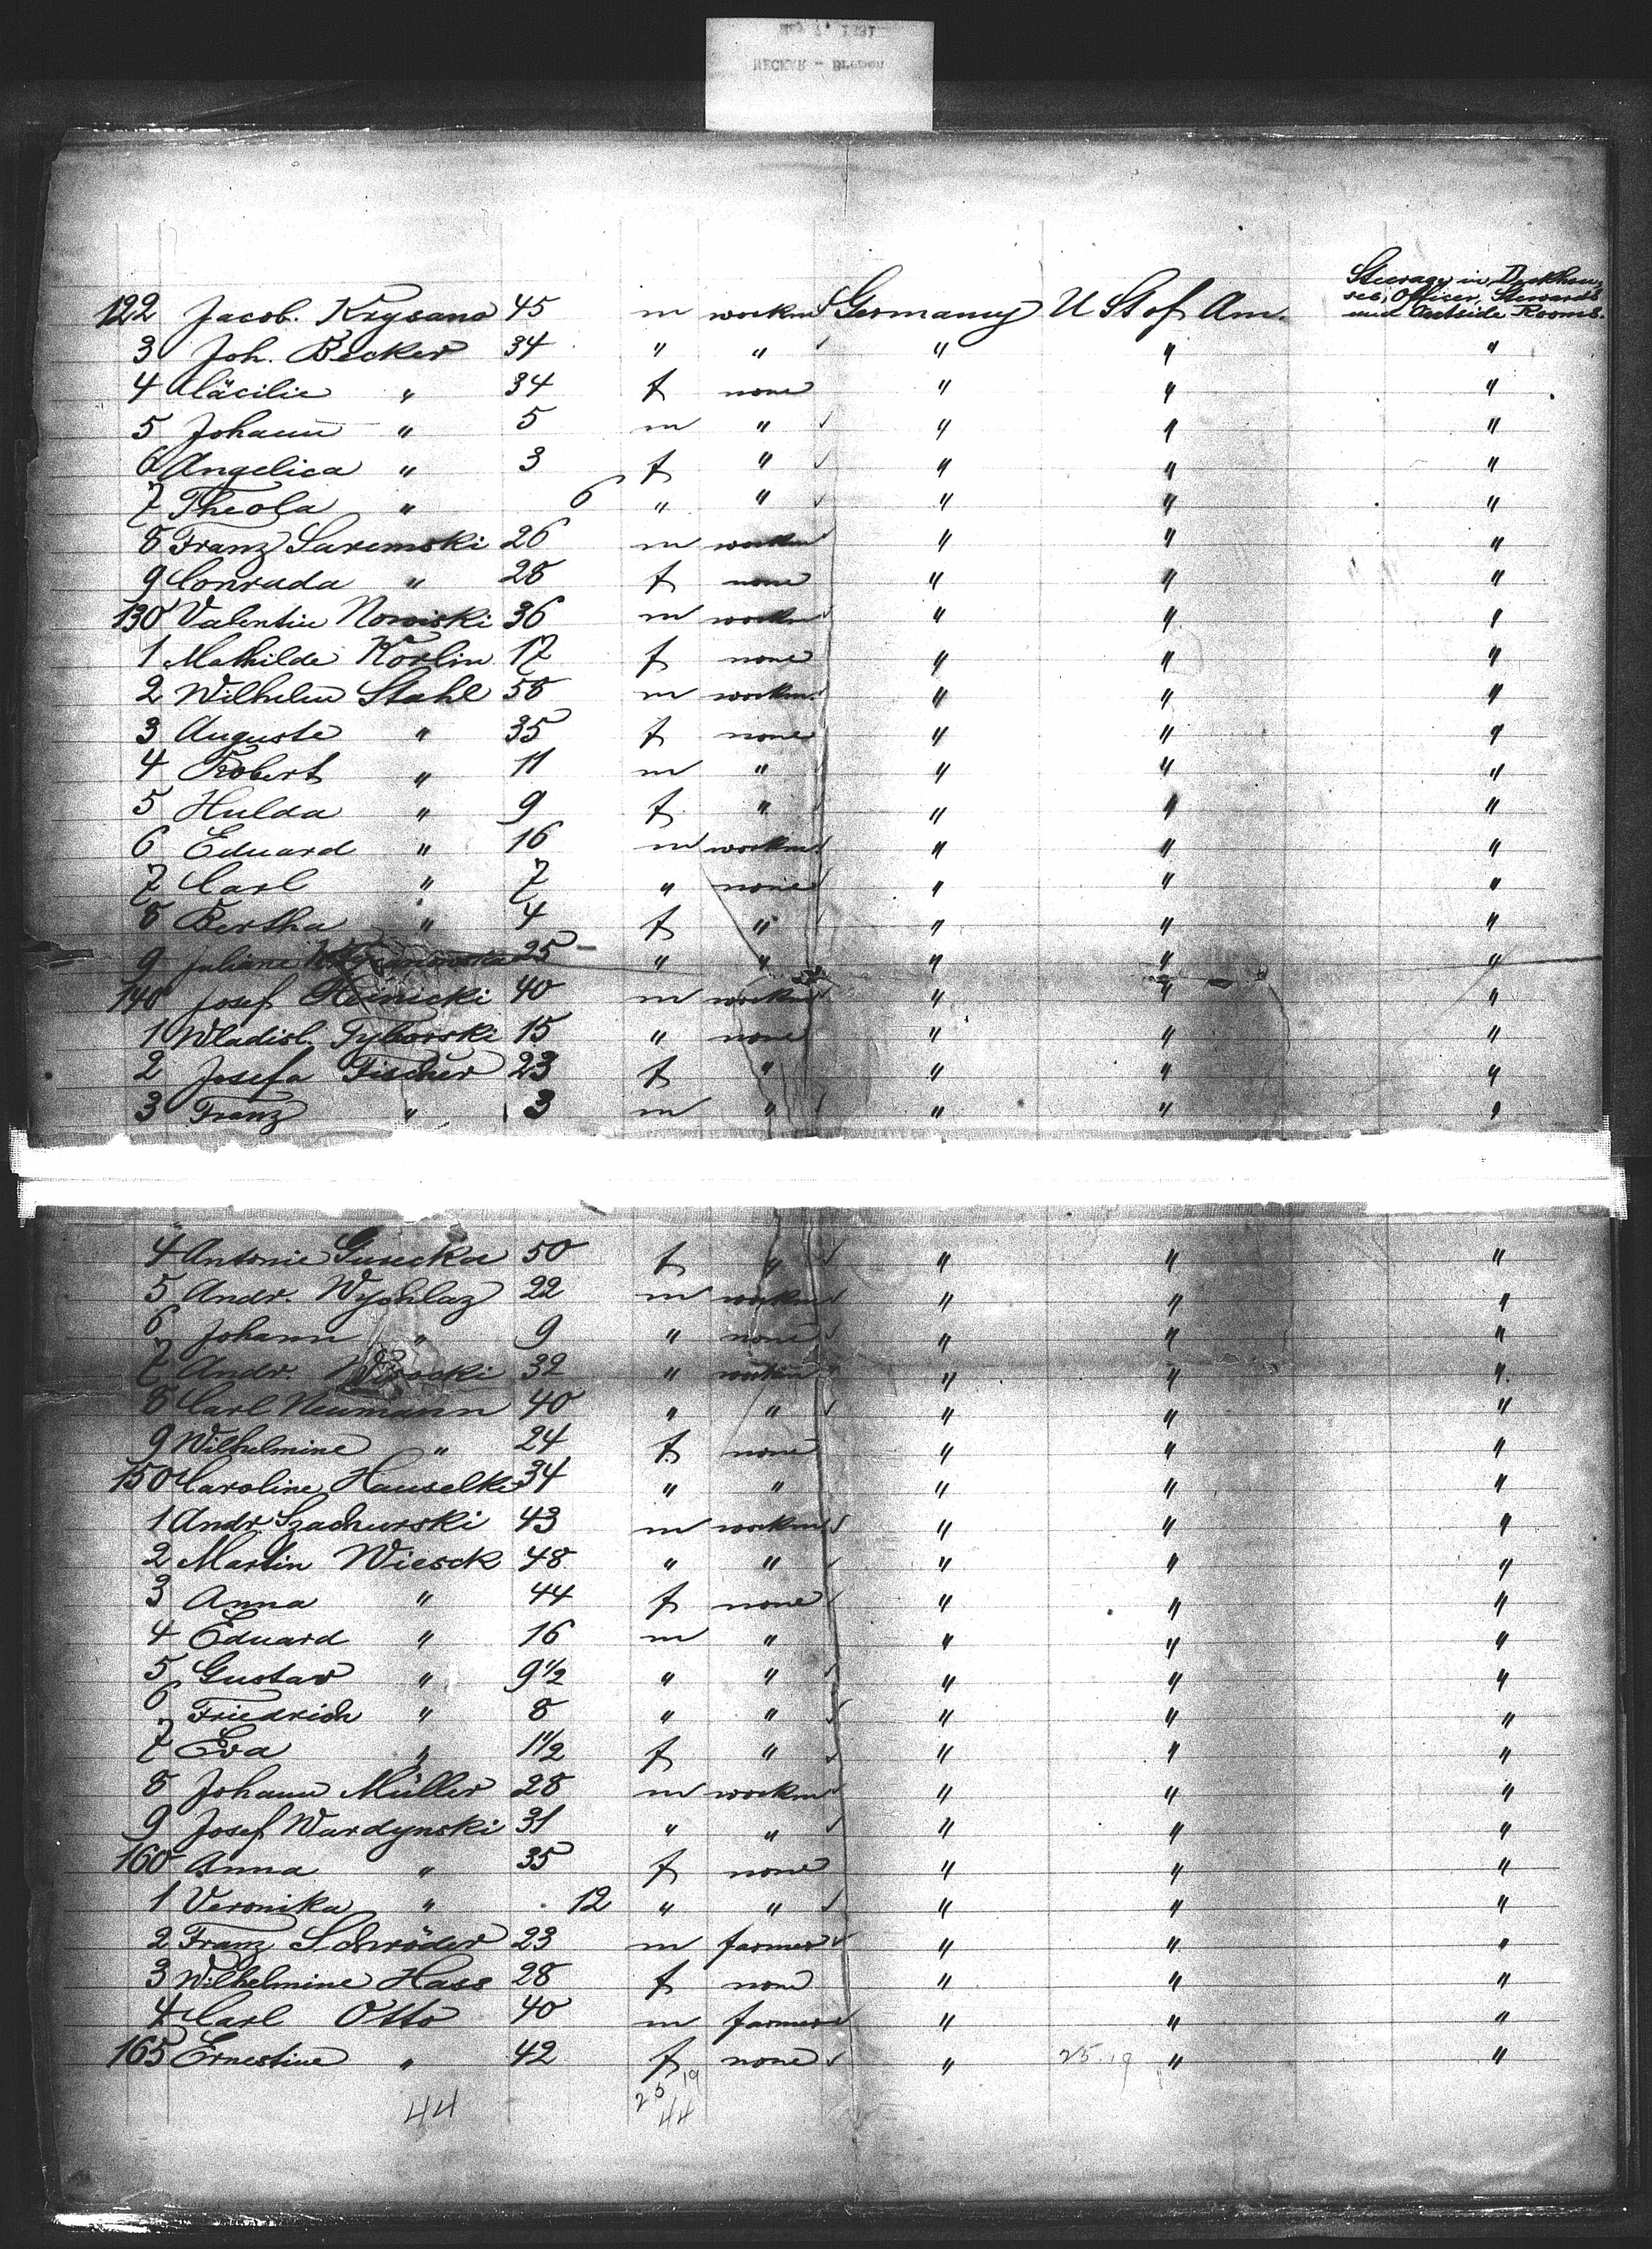 NECKAR - Bremen
Steerage in Deckhou-
ses, Officer, Stewards
and Outside Rooms.
122 Jacob. Krysano 45 m workm Germany U St of Am.
3 Joh. Becker 34 " " " " "
4 Cäcilie " 34 f none " " "
5 Johann " 5 m " " " "
6 Angelica " 3 f " " " "
7 Theola " 6 " " " " "
8 Franz Saremski 26 m workm " " "
9 Conrada " 28 f none " " "
130 Valentin Nowiski 36 m workm " " "
1 Mathilde Körlin 17 f none " " "
2 Wilhelm Stahl 58 m workm " " "
3 Auguste " 35 f none " " "
4 Robert " 11 m " " " "
5 Hulda " 9 f " " " "
6 Eduard " 16 m workm " " "
7 Carl " 7 " none " " "
8 Bertha " 4 f " " " "
9 Juliane 25 " " " " "
140 Josef Heinicki 40 m workm " " "
1 Wladisl. Tyborski 15 " none " " "
2 Josefa Fischer 23 f " " " "
3 Franz " 3 m " " " "
4 Antonie 50 f " " " "
5 Andr. Wychlaz 22 m workm " " "
6 Johann " 9 " none " " "
7 Andr. 32 " workm " " "
8 Carl Neumann 40 " " " " "
9 Wilhelmine " 24 f none " " "
150 Caroline Hauselke 34 " " " " "
1 Andr Szachurski 43 m workm " " "
2 Martin Wiesck 48 " " " " "
3 Anna " 44 f none " " "
4 Eduard " 16 m " " " "
5 Gustav " 9 1/2 " " " " "
6 Friedrich " 8 " " " " "
7 Eva " 1 1/2 f " " " "
8 Johann Müller 28 m workm " " "
9 Josef Wardynski 31 " " " " "
160 Anna " 35 f none " " "
1 Veronika " 12 " " " " "
2 Franz Schröder 23 m farmer " " "
3 Wilhelmine Hass 28 f none " " "
4 Carl Otto 40 m farmer " " "
165 Ernestine " 42 f none " 25.19 " "
25 19
44 44